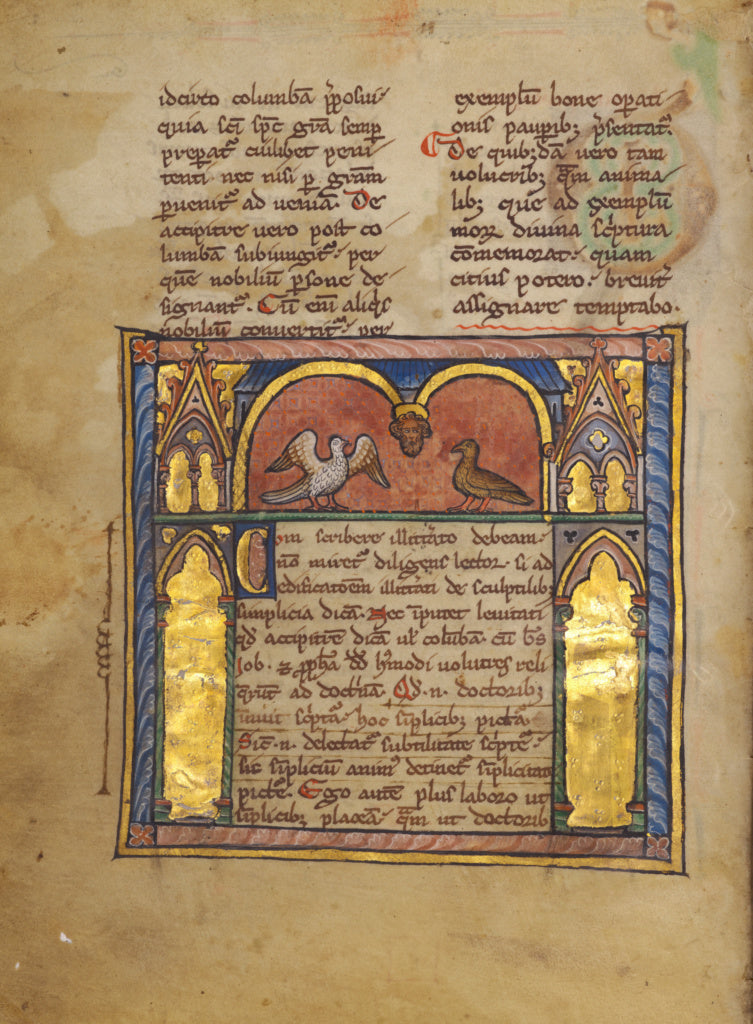 idcirco columbā p̄posui
quia sci spc grā semp
preparat᷑ cuilibet peni
tenti· nec nisi ꝑ gr̄am
ꝑuenit᷑ ad ueniā· De
accipitre uero post co
lumbā subiungit᷑· per
quē nobiliū ꝑsone de
signant᷑· Cū eni aliqis
nobiliū conuertit᷑· per
exemplū bone oꝑati
onis pauꝑibꝫ p̄sentat᷑·
De quibꝫdā uero tam
uolucribꝫ qͣm anima
libꝫ que ad exemplū
moꝝ diuina sc̄ptura
comemorat· quam
citius potero· breuit̄
assignare temptabo·
Com scribere illitt̄ato debeam
nō miret᷑ diligens lector· si ad
edificatōem illitt̄ati de sculptilibꝫ
simplicia dicā· Nec īputet leuitati
qd̄ accipitrē dicā ul̄ colūbā· cū bs̄
Job· ⁊ ꝓph̄a dd̄ hꝰmodi uolucres reli
qr̄ut ad doct̄nā· Qd̄·n· doctoribꝫ
inuit sc̄ptā· hoc siplicibꝫ pictā·
Sic·n· delectat᷑ subtilitate sc̄pte·
sic sīpliciū animꝰ detinet᷑ sīplicitate
picte· Ego autē plus laboro ut
siplicibꝫ placeā· qͣm ut doctorib